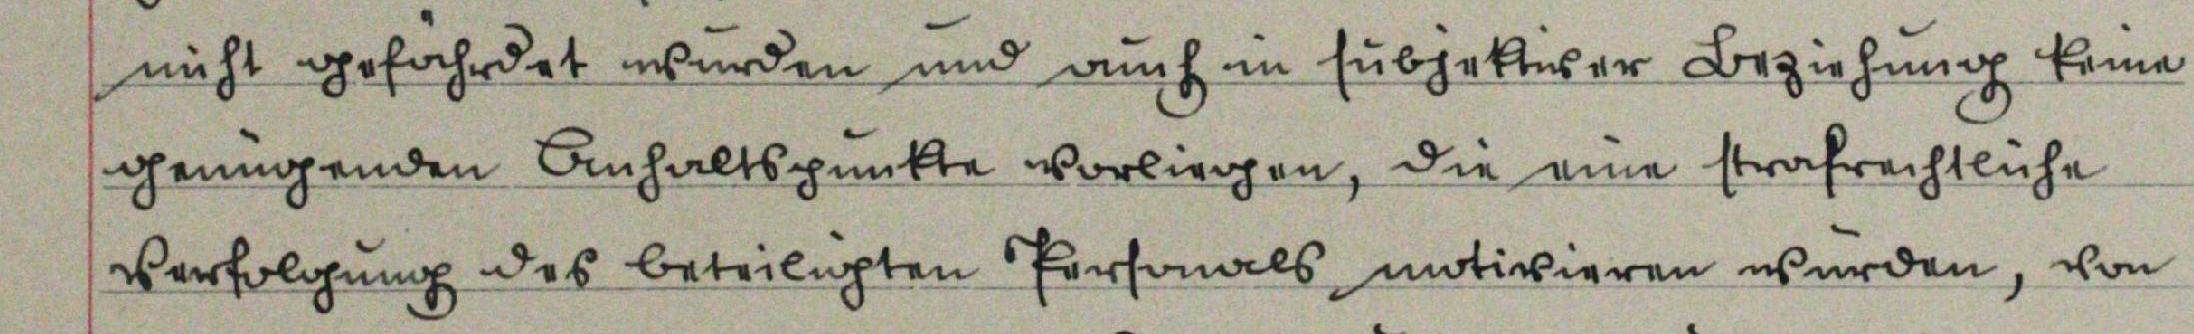 nicht gefährdet wurden und auch in subjektiver Beziehung keine
genügenden Anhaltspunkte vorliegen, die eine strafrechtliche
Verfolgung des beteiligten Personals motivieren würden, von